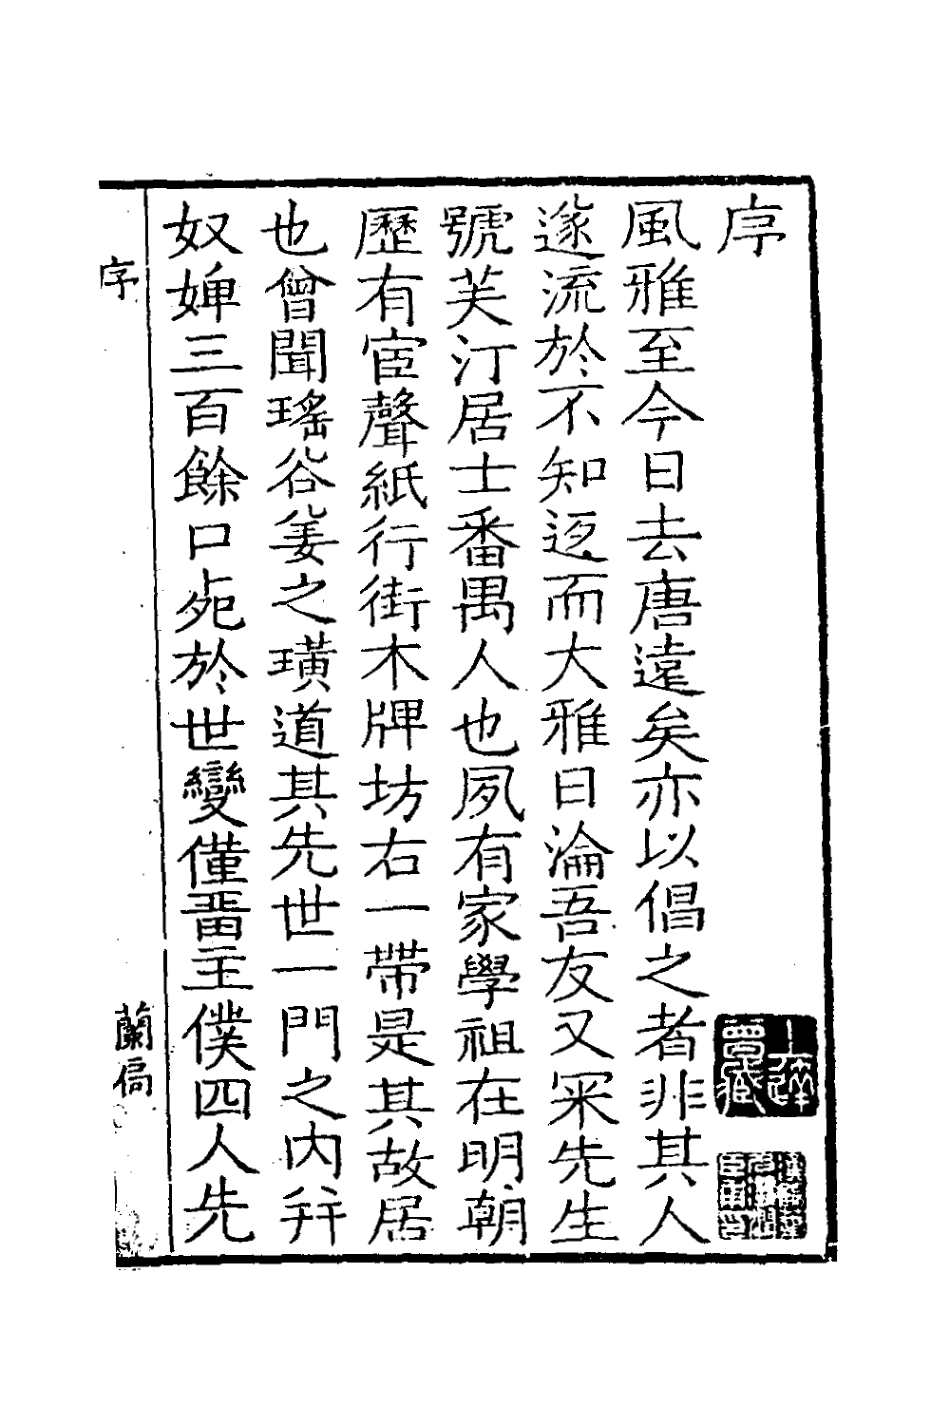 序
風雅至今日去唐遠矣亦以倡之者非其人
遂流於不知返而大雅日淪吾友又罙先生
號芙汀居士番禺人也夙有家學祖在明朝
歷有宦聲紙行街木牌坊右一帶是其故居
也曾聞瑤谷姜之璜道其先世一門之内并
奴婢三百餘口死於世變僅畱主僕四人先
序
蘭偈